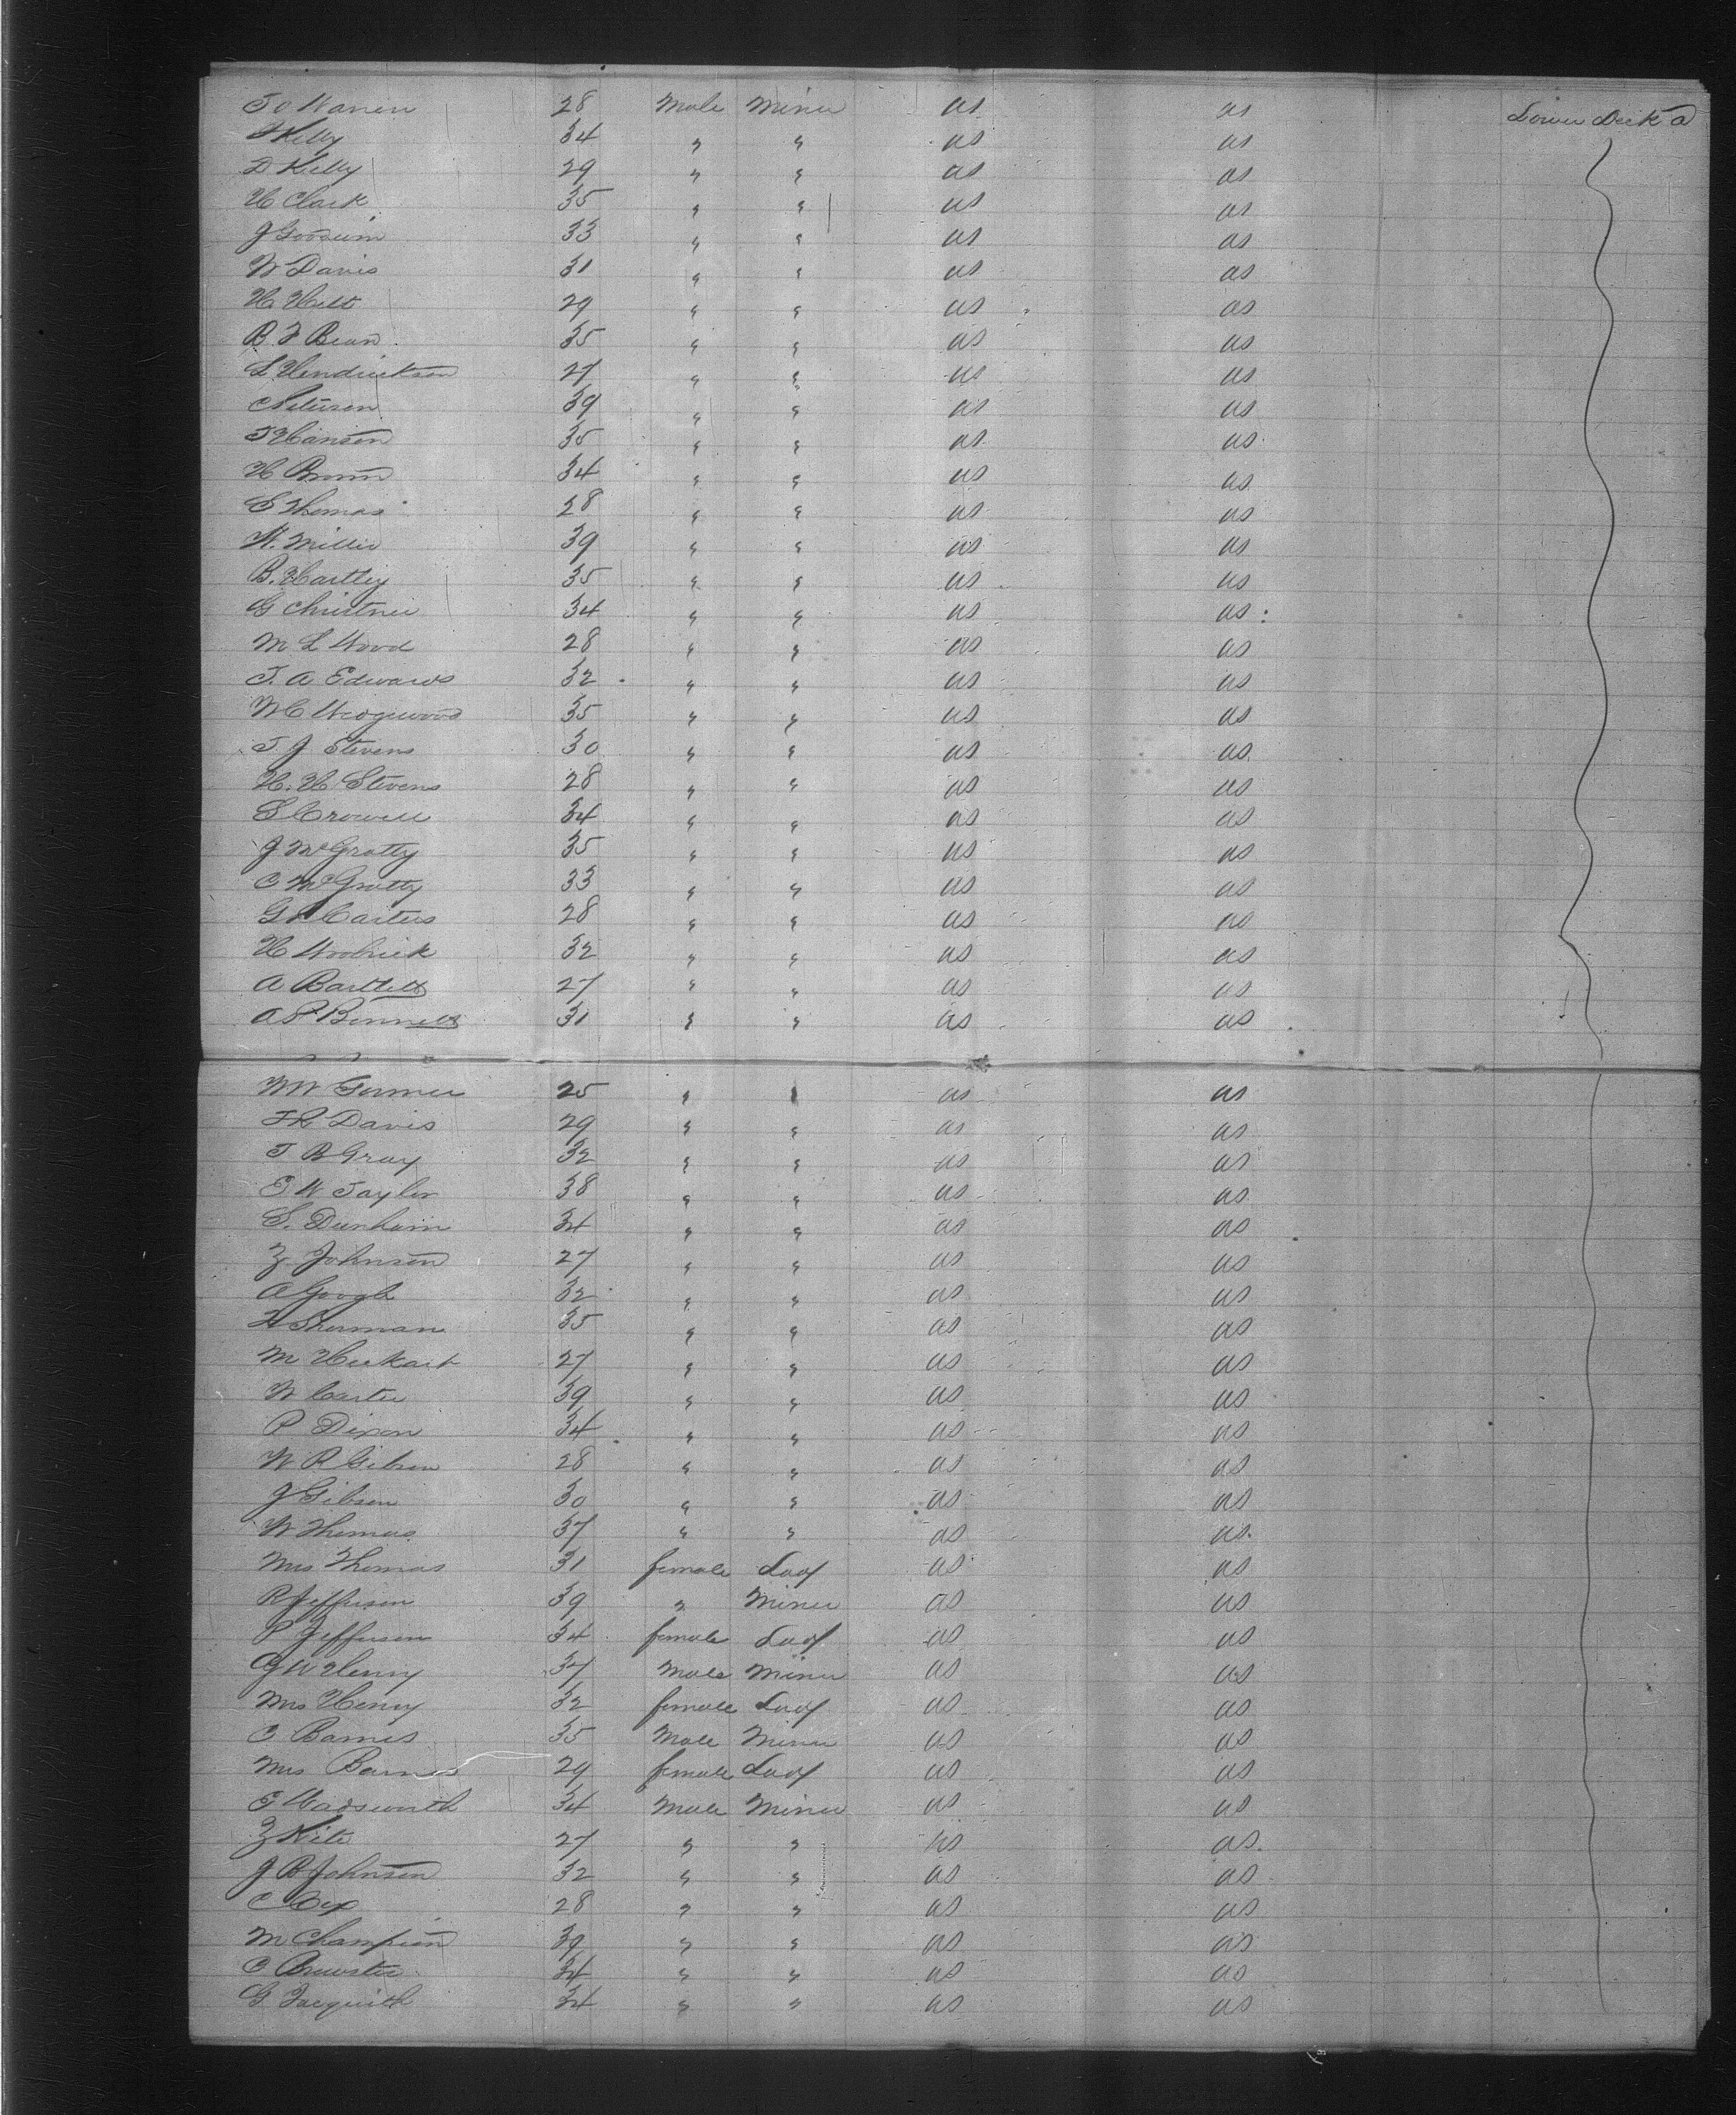 T O Warren 28 Male Miner us us Lower Deck a
J Kelly 34 " " us us
D Kelly 29 " " us us
H Clark 35 " " us us
J Goodwin 33 " " us us
W Davis 31 " " us us
H. Hilt 29 " " us us
B F Bean 35 " " us us
L Hendrickson 27 " " us us
C Peterson 39 " " us us
T Hanson 35 " " us us
H Brown 34 " " us us
E Thomas 28 " " us us
W. Miller 39 " " us us
B. Hartley 35 " " us us
G Christner 34 " " us us
M L Wood 28 " " us us
T. A Edwards 32 " " us us
W C Wedgewood 35 " " us us
T J Stevens 30 " " us us
H. H Stevens 28 " " us us
S Crowell 34 " " us us
J McGratty 35 " " us us
C McGratty 33 " " us us
G Carters 28 " " us us
H Woolrick 32 " " us us
A Bartlett 27 " " us us
A P Bennett 31 " " us us
W W Gormer 25 " " us us
F R Davis 29 " " us us
T B Gray 32 " " us us
E W Taylor 38 " " us us
S. Dunham 34 " " us us
Z Johnson 27 " " us us
A Googh 32 " " us us
H Sherman 35 " " us us
M Heckart 27 " " us us
W Carter 39 " " us us
P Dixon 34 " " us us
W R Gibson 28 " " us us
J Gibson 30 " " us us
W Thomas 37 " " us us
Mrs Thomas 31 female Lady us us
R Jefferson 39 " Miner us us
P Jefferson 34 female Lady us us
G W Henry 37 Male Miner us us
Mrs Henry 32 female Lady us us
C Barnes 35 Male Miner us us
Mrs Barnes 29 female Lady us us
E Wadsworth 34 Male Miner us us
Z Kite 27 " " us us
J B Johnson 32 " " us us
C 28 " " us us
M Champion 39 " " us us
C Brewster 34 " " us us
G Jaequith 34 " " us us